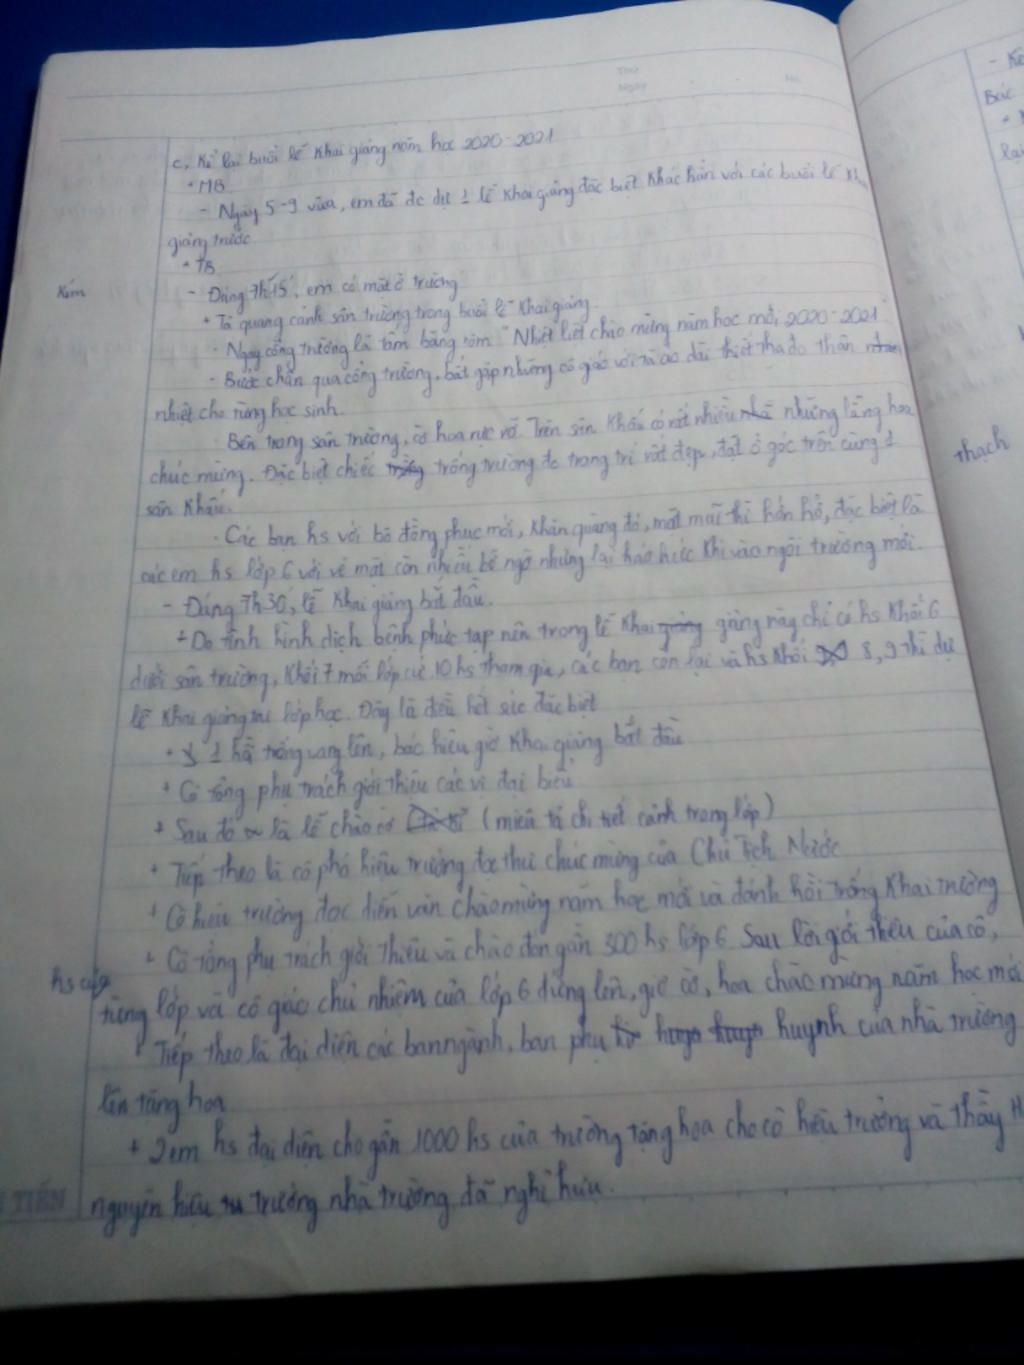 Thứ
Ngày No
c, Kể lại buổi lễ khai giảng năm học 2020-2021
* MB
- Ngày 5-9 vừa, em đã đc dự 1 lễ khai giảng đặc biệt khác hẳn với các buổi lễ khai
giảng trước
* TB
- Đúng 7h15', em có mặt ở trường
+ Tả quang cảnh sân trường trong buổi lễ khai giảng
- Ngay cổng trường là tấm băng rôn "Nhiệt liệt chào mừng năm học mới 2020-2021"
- Bước chân qua cổng trường, bắt gặp những cô giáo với tà áo dài thiết tha đo thân
nhiệt cho từng học sinh.
Bên trong sân trường, cờ hoa rực rỡ. Trên sân khấu có rất nhiều những lẵng hoa
chúc mừng. Đặc biệt chiếc trống trường đc trang trí rất đẹp, đặt ở góc trên cùng
sân khấu.
. Các bạn hs với bộ đồng phục mới, khăn quàng đỏ, mặt mũi thì hớn hở, đặc biệt là
các em hs lớp 6 với vẻ mặt còn nhiều bỡ ngỡ nhưng lại háo hức khi vào ngôi trường mới.
- Đúng 7h30', lễ khai giảng bắt đầu.
+ Do tình hình dịch bệnh phức tạp nên trong lễ khai giảng giảng này chỉ có hs khối 6
dưới sân trường, khối 7 mỗi lớp cử 10 hs tham gia, các bạn còn lại và hs khối 8, 9 thì dự
lễ khai giảng tại lớp học. Đây là điều hết sức đặc biệt
+ 1 hồi trống vang lên, báo hiệu giờ khai giảng bắt đầu
+ Cô tổng phụ trách giới thiệu các vị đại biểu
+ Sau đó là lễ chào cờ (miêu tả chi tiết cảnh trong lớp)
+ Tiếp theo là cô phó hiệu trưởng đọc thư chúc mừng của Chủ Tịch Nước
+ Cô hiệu trưởng đọc diễn văn chào mừng năm học mới và đánh hồi trống khai trường
+ Cô tổng phụ trách giới thiệu và chào đón gần 300 hs lớp 6. Sau lời giới thiệu của cô,
hs của
từng lớp và cô giáo chủ nhiệm của lớp 6 đứng lên, giơ cờ, hoa chào mừng năm học mới
+ Tiếp theo là đại diện các ban ngành, ban phụ huynh của nhà trường
lên tặng hoa
+ 2 em hs đại diện cho gần 1000 hs của trường tặng hoa cho cô hiệu trưởng và thầy H
nguyên hiệu trưởng nhà trường đã nghỉ hưu.
TIẾN
thạch